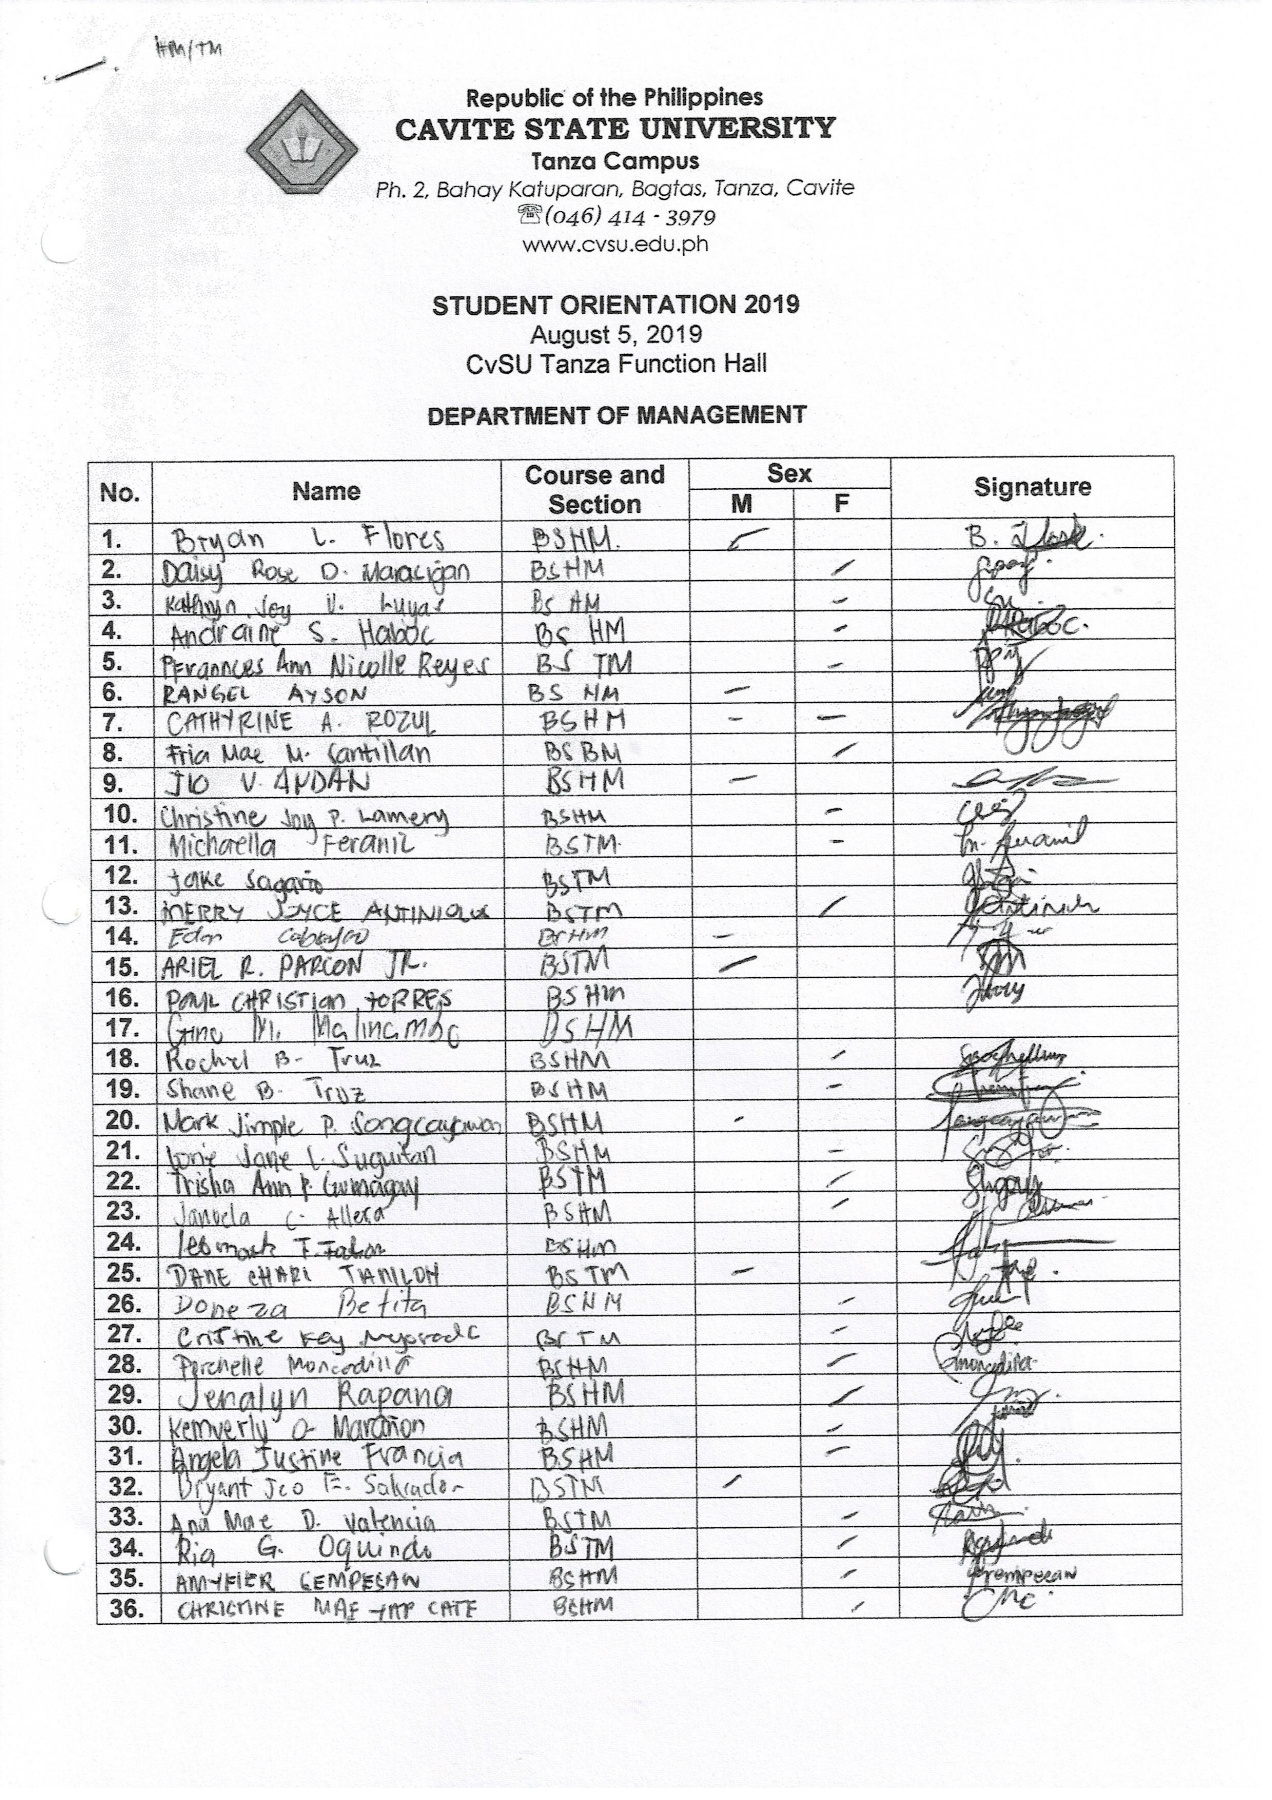 HM/TM
Republic of the Philippines
CAVITE STATE UNIVERSITY
Tanza Campus
Ph. 2, Bahay Katuparan, Bagtas, Tanza, Cavite
☏(046) 414 - 3979
www.cvsu.edu.ph
STUDENT ORIENTATION 2019
August 5, 2019
CvSU Tanza Function Hall
DEPARTMENT OF MANAGEMENT
No. Name Course and Section Sex M F Signature
1. Bryan L. Flores BSHM. B. Flores
2. Daisy Rose D. Maracigan BSHM
3. Kathryn Joy V. Luyas BSHM
4. Andraine S. Haboc BS HM
5. Frannces Ann Nicolle Reyes BS TM
6. RANGEL AYSON BS HM
7. CATHYRINE A. ROZUL BSHM
8. Fria Mae M. Santillan BSBM
9. JIO V. ANDAN BSHM
10. Christine Joy P. Lamery BSHM
11. Michaella Feranil BSTM. M. Feranil
12. Jake Sagario BSTM
13. MERRY JOYCE BSTM
14. BSHM
15. ARIEL R. PARCON JR. BSTM
16. PAUL CHRISTIAN TORRES BSHM
17. Gino M. BSHM
18. Rochel B. Truz BSHM
19. Shane B. Truz BSHM
20. Mark Jimple P. BSHM
21. Jane L. Suguitan BSHM
22. Trisha Ann P. Gumagay BSTM
23. Januela C. Allera BSHM
24. BSHM
25. DANE CHARI BSTM
26. Doneza Betita BSHM
27. Cristine Kay BSTM
28. Perchelle Moncadilla BSHM
29. Jenalyn Rapana BSHM
30. Kemverly O. Marañon BSHM
31. Angela Justine Francia BSHM
32. Bryant Jco E. Salvador BSTM
33. Ana Mae D. Valencia BSTM
34. Ria G. Oquindo BSTM
35. GEMPESAW BSHM
36. CHRISTINE MAE YAP CATE BSHM